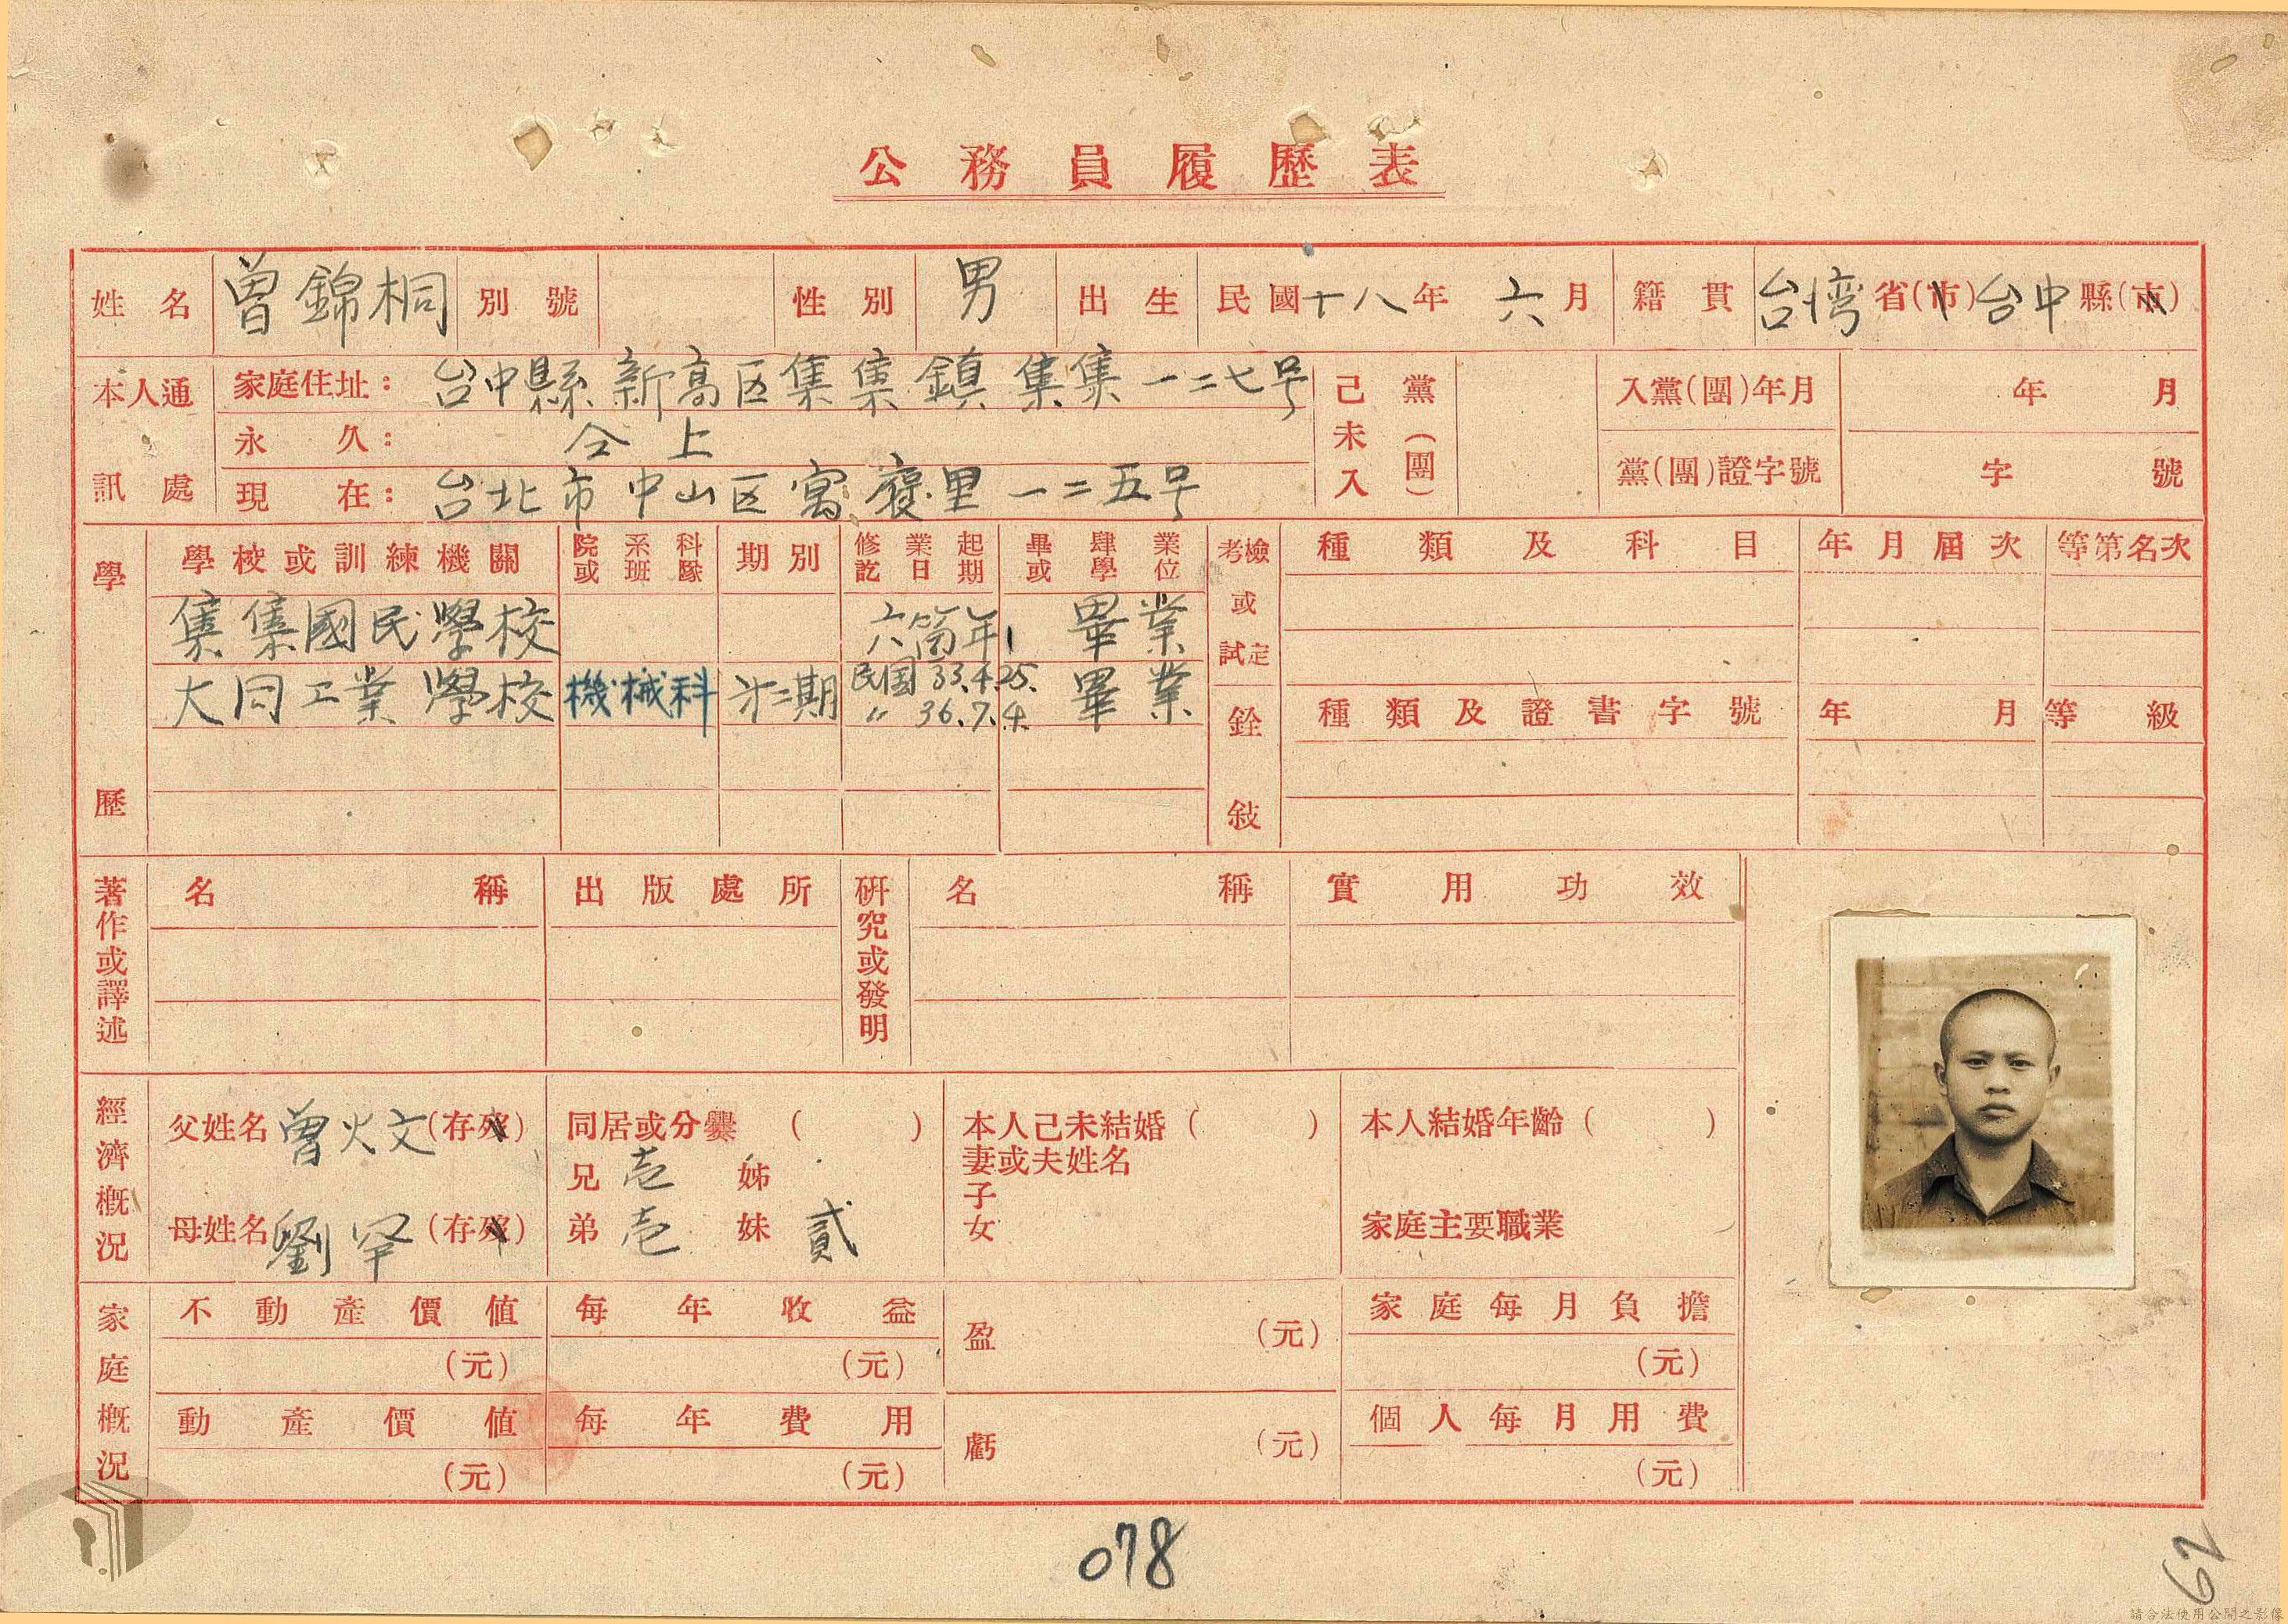 公務員履歷表
姓名 曾錦桐 別號 性別 男 出生 民國十八年六月 籍貫 台湾省(市)台中縣(市)
本人通訊處
家庭住址：台中縣新高区集集鎮集集一二七号
永久：仝上
現在：台北市中山区寮里一二五号
己未入黨(團)
入黨(團)年月 年 月
黨(團)證字號 字 號
學歷
學校或訓練機關 院或 系班 科隊 期別 修業起訖日期 畢肄業或學位
集集國民學校 六箇年 畢業
大同工業學校 機械科 才二期 民国33.4.25. 〃36.7.4. 畢業
考試或檢定
種類及科目 年月屆次 等第名次
銓敍
種類及證書字號 年 月 等級
著作或譯述
名稱 出版處所
研究或發明
名稱 實用功效
經濟概況
父姓名 曾火文 (存歿) 同居或分爨( ) 本人己未結婚( ) 本人結婚年齡( )
兄 壱 姊 妻或夫姓名
子
母姓名 劉罕 (存歿) 弟 壱 妹 貳 女 家庭主要職業
家庭概況
不動產價值 每年收益 盈 (元) 家庭每月負擔
(元) (元) (元)
動產價值 每年費用 虧 (元) 個人每月用費
(元) (元) (元)
078
62
請合法使用公開之影像